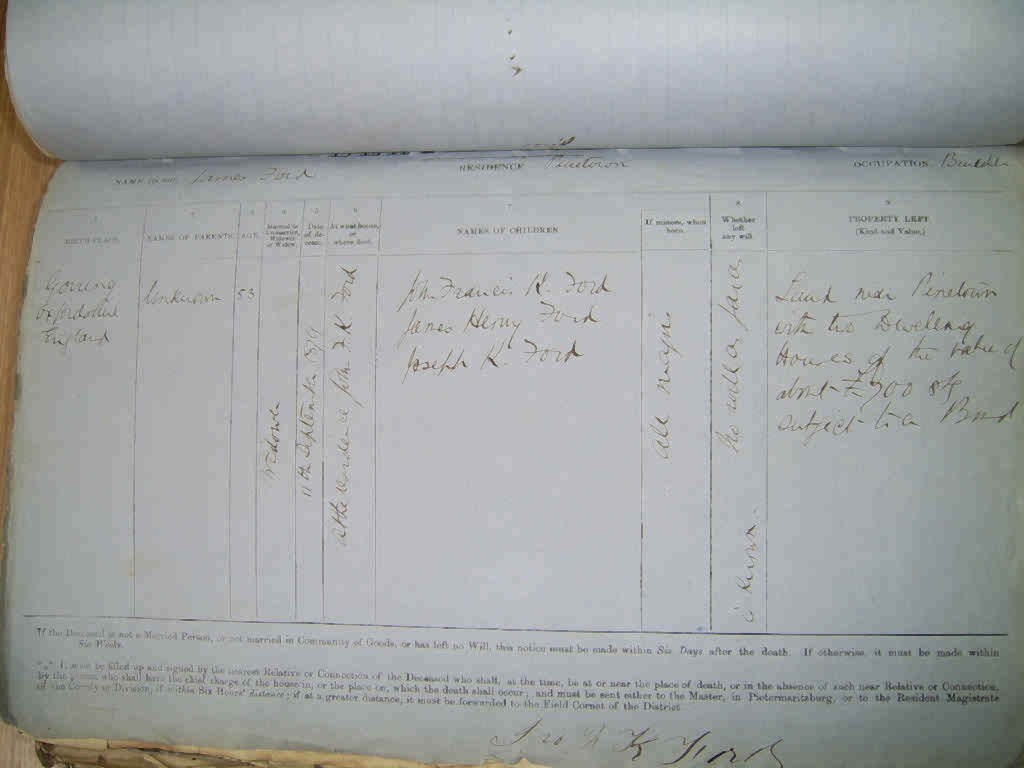 NAME (in full) James Ford RESIDENCE Pinetown OCCUPATION Builder
1 2 3 4 5 6 7 8 9
BIRTH-PLACE. NAMES OF PARENTS. AGE. Married in Community, Widower or Widow. Date of decease. At what house, or where died. NAMES OF CHILDREN If minors, when born. Whether left any will. PROPERTY LEFT (Kind and Value.)
Goring
Oxfordshire
England
Unknown
53
Widower
11th September 1879
At the residence John F. K. Ford
John Francis K. Ford
James Henry Ford
Joseph K. Ford
All Majors
No will as far as
is known.
Land near Pinetown
with two Dwelling
Houses of the value of
about £700 Stg
subject to a Bond
If the Deceased is not a Married Person, or not married in Community of Goods, or has left no Will, this notice must be made within Six Days after the death. If otherwise, it must be made within
Six Weeks.
*** It must be filled up and signed by the nearest Relative or Connection of the Deceased who shall, at the time, be at or near the place of death, or in the absence of such near Relative or Connection,
by the person who shall have the chief charge of the house in, or the place on, which the death shall occur; and must be sent either to the Master, in Pietermaritzburg, or to the Resident Magistrate
of the County or Division, if within Six Hours' distance; if at a greater distance, it must be forwarded to the Field Cornet of the District.
K Ford